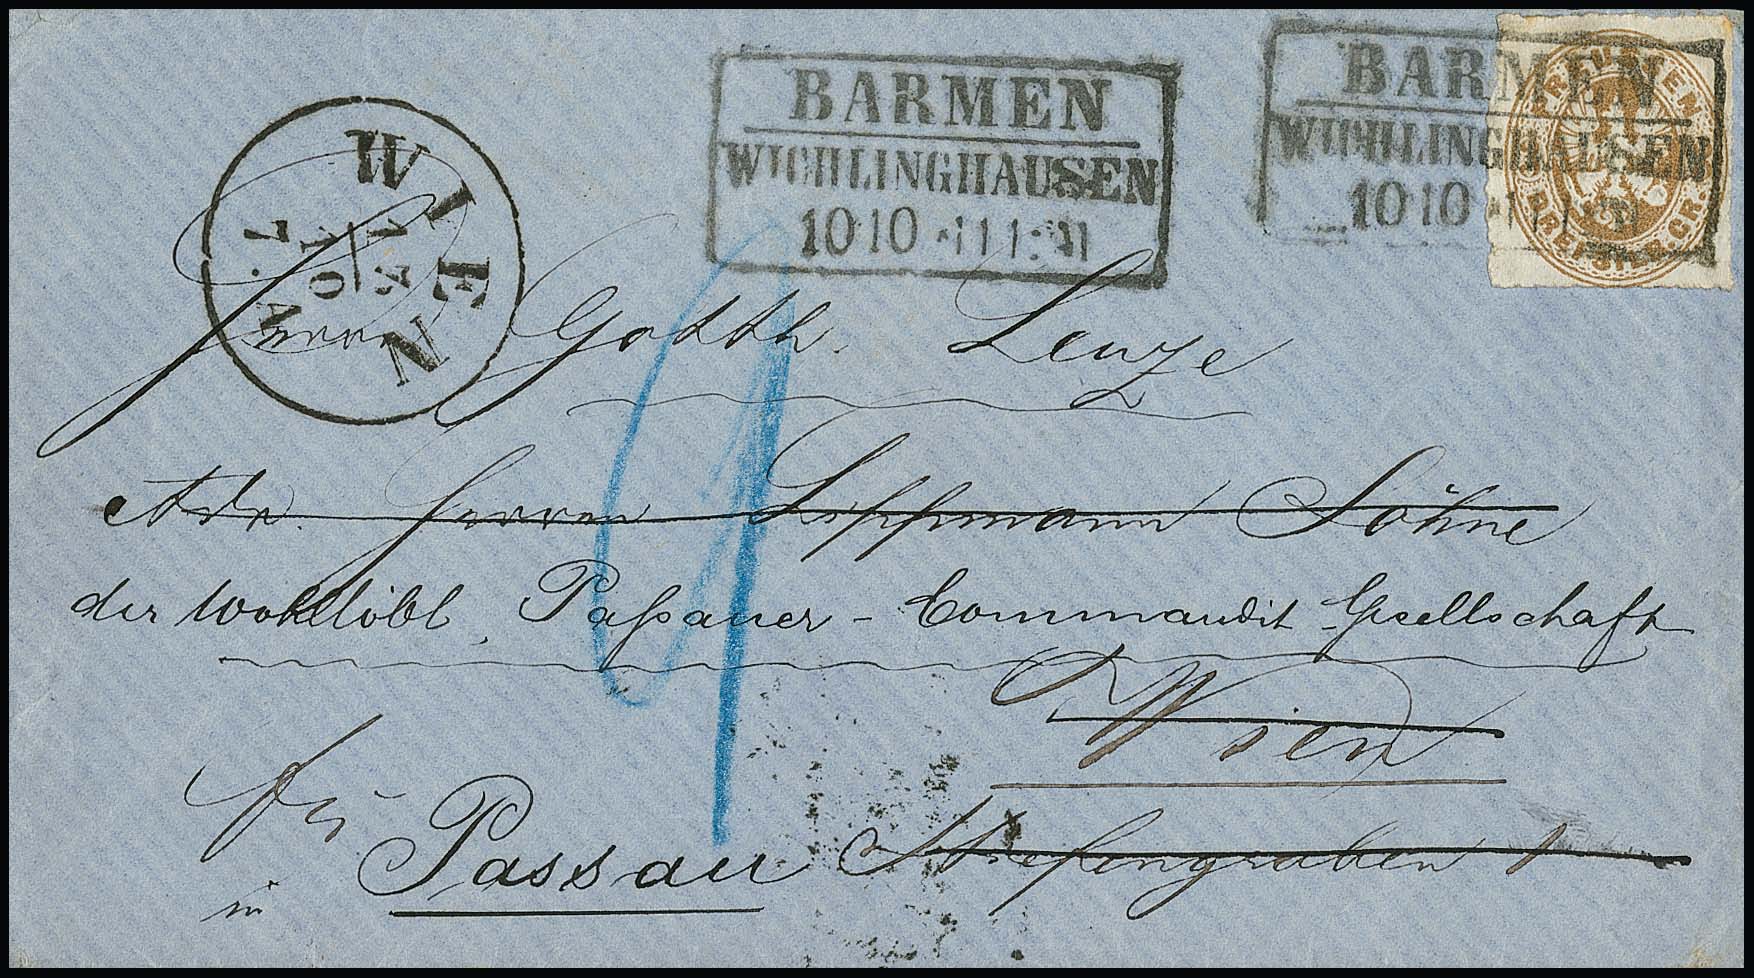 BARMEN
WICHLINGHAUSEN
10 10 11-1
BARMEN
WICHLINGHAUSEN
10 10
PREUSSEN
DREI SILB. GR.
WIEN
13
10
7. A
Herrn Gotth. Lenze
Adr. Herren Lippmann Söhne
der wohllöbl. Paßauer-Commandit-Gesellschaft
Wien
für
in Passau Tiefengraben 1
4